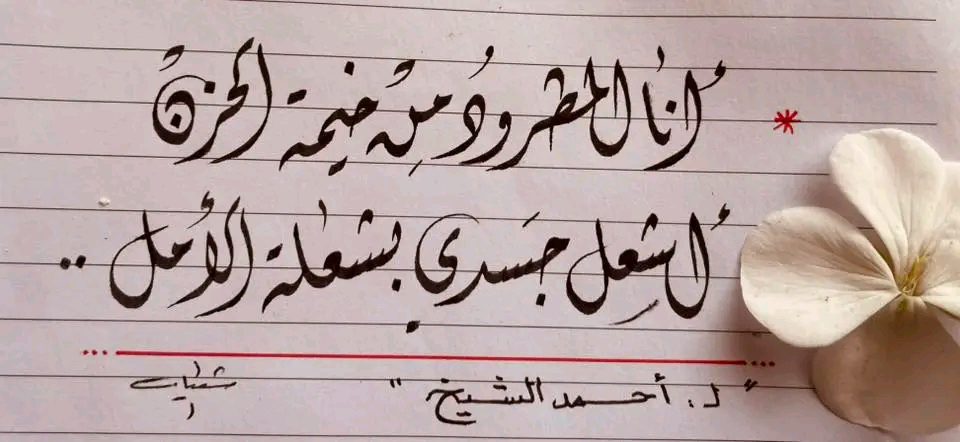 * أنا المطرودُ مِنْ خيمة الحزنْ
أُشعِل جسَدي بشعلة الأمل ..
" لـ . أحمد الشيخ "